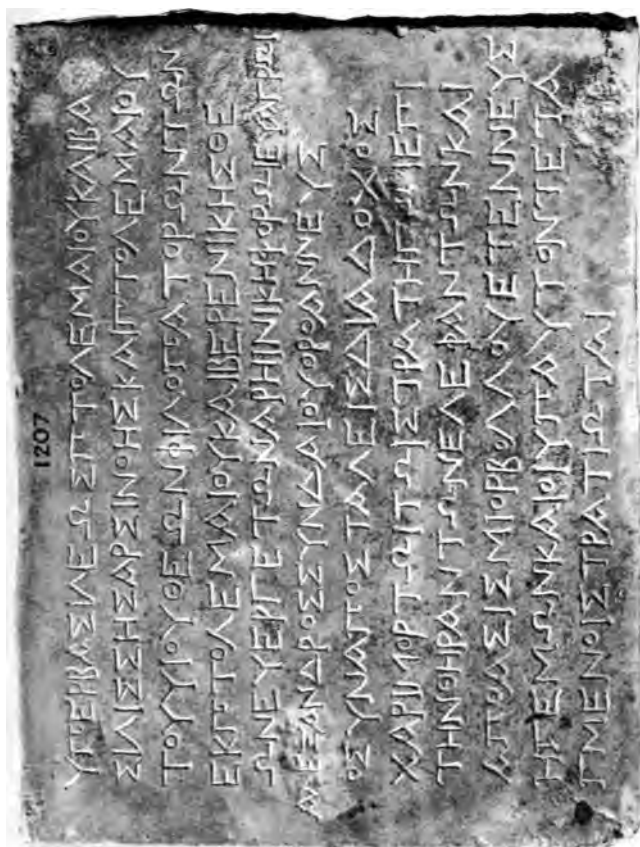 1207
ΥΠΕΡΒΑΣΙΛΕΩΣΠΤΟΛΕΜΑΙΟΥΚΑΙΒΑ
ΣΙΛΙΣΣΗΣΑΡΣΙΝΟΗΣΚΑΙΠΤΟΛΕΜΑΙΟΥ
ΤΟΥΥΙΟΥΘΕΩΝΦΙΛΟΠΑΤΟΡΩΝΤΩΝ
ΕΚΠΤΟΛΕΜΑΙΟΥΚΑΙΒΕΡΕΝΙΚΗΣΘΕ
ΩΝΕΥΕΡΓΕΤΩΝΑΡΗΙΝΙΚΗΦΟΡΩΙΕΥΑΓΡΩΙ
ΑΛΕΞΑΝΔΡΟΣΣΥΝΔΑΙΟΥΟΡΟΑΝΝΕΥΣ
ΟΣΥΝΑΠΟΣΤΑΛΕΙΣΔΙΑΔΟΧΟΣ
ΧΑΡΙΜΟΡΤΩΙΤΩΙΣΤΡΑΤΗΓΩΙΕΠΙ
ΤΗΝΘΗΡΑΝΤΩΝΕΛΕΦΑΝΤΩΝΚΑΙ
ΑΠΟΑΣΙΣΜΙΟΡΒΟΛΛΟΥΕΤΕΝΝΕΥΣ
ΗΓΕΜΩΝΚΑΙΟΙΥΠΑΥΤΟΝΤΕΤΑ
ΓΜΕΝΟΙΣΤΡΑΤΙΩΤΑΙ